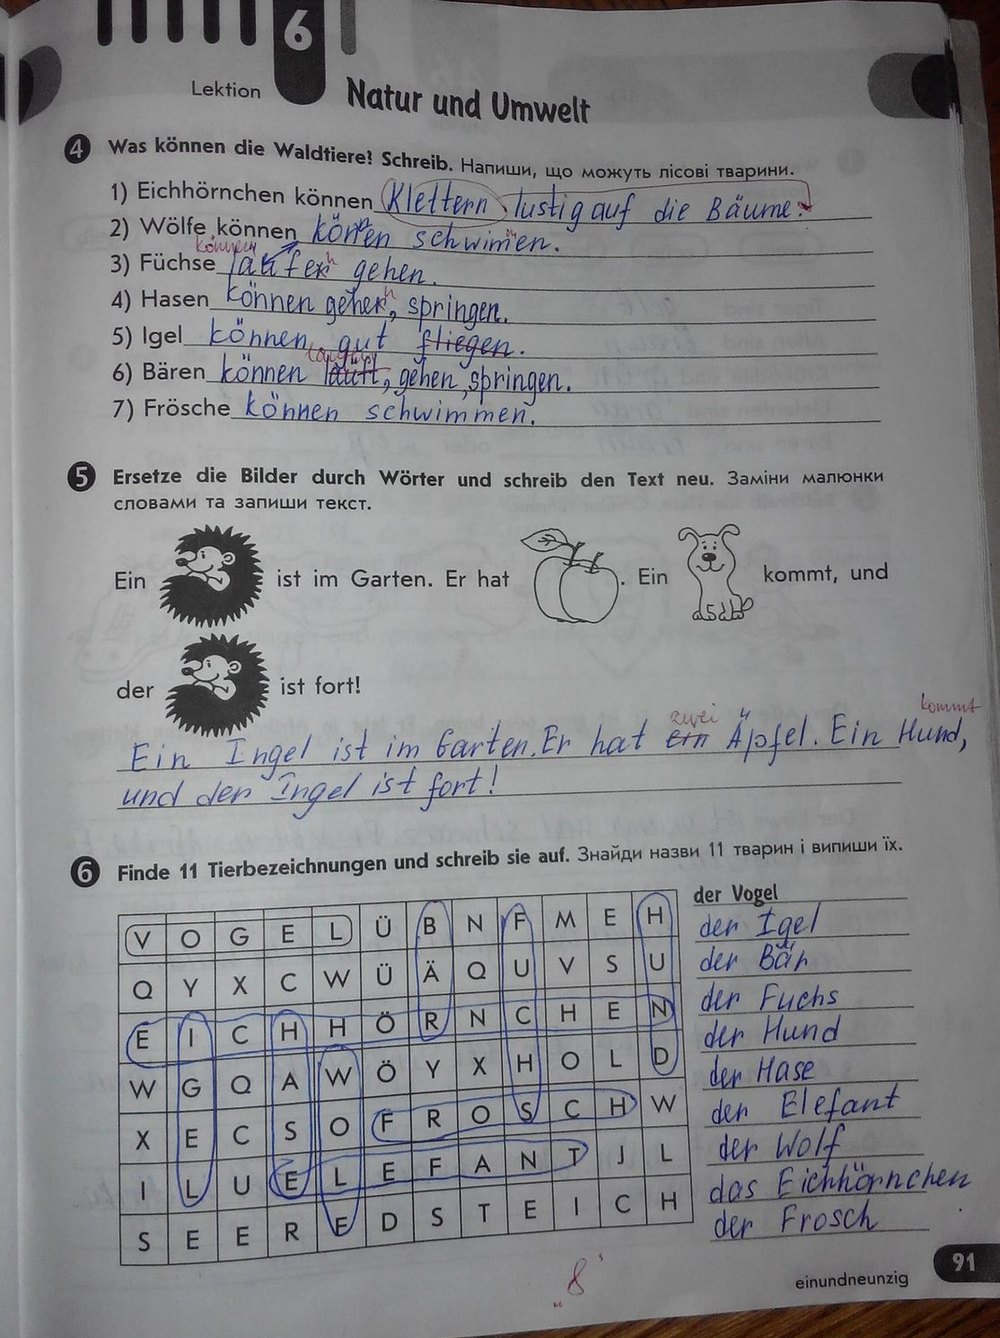 6
Lektion
Natur und Umwelt
4 Was können die Waldtiere? Schreib. Напиши, що можуть лісові тварини.
1) Eichhörnchen können Klettern lustig auf die Bäume.
2) Wölfe können können schwimen.
können
3) Füchse laufen gehen.
4) Hasen können gehen, springen.
5) Igel können gut fliegen.
6) Bären können läuft, gehen, springen.
7) Frösche können schwimmen.
5 Ersetze die Bilder durch Wörter und schreib den Text neu. Заміни малюнки
словами та запиши текст.
Ein ist im Garten. Er hat . Ein kommt, und
der ist fort!
zwei kommt
Ein Ingel ist im Garten. Er hat ein Äpfel. Ein Hund,
und der Ingel ist fort!
6 Finde 11 Tierbezeichnungen und schreib sie auf. Знайди назви 11 тварин і випиши їх.
V O G E L Ü B N F M E H
Q Y X C W Ü Ä Q U V S U
E I C H H Ö R N C H E N
W G Q A W Ö Y X H O L D
X E C S O F R O S C H W
I L U E L E F A N T J L
S E E R F D S T E I C H
der Vogel
der Igel
der Bär
der Fuchs
der Hund
der Hase
der Elefant
der Wolf
das Eichhörnchen
der Frosch
„8‟
91
einundneunzig